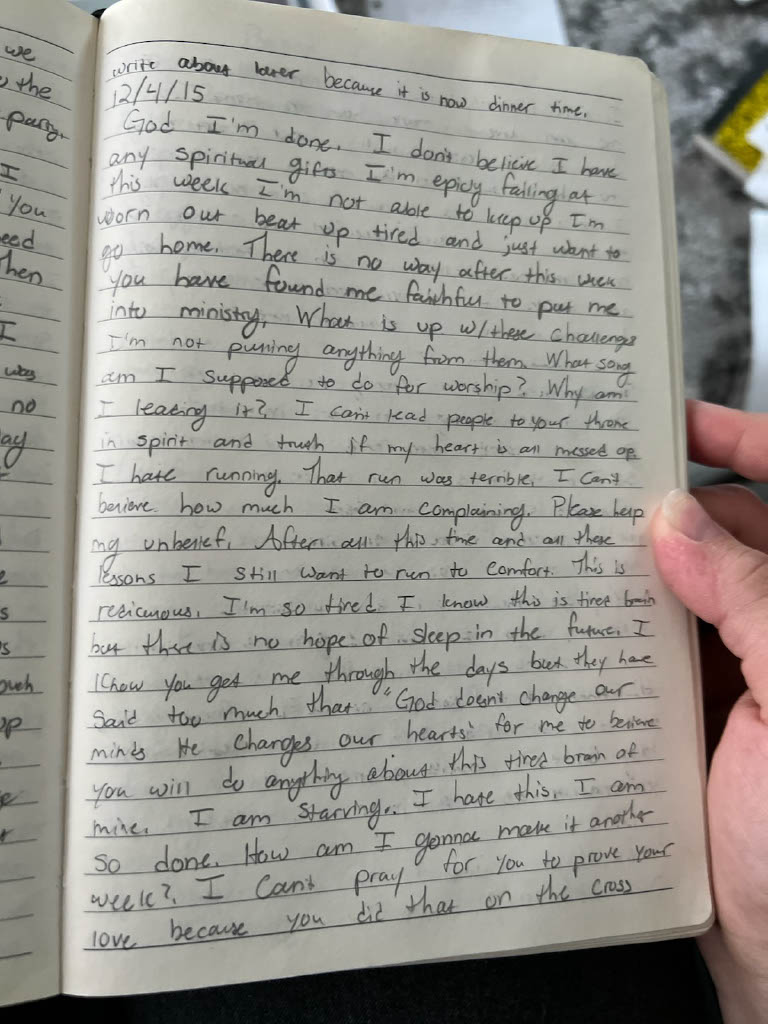 we
the
party.
I
you
eed
Then
I
was
no
ay
s
s
ough
up
write about later because it is now dinner time.
12/4/15
God I'm done. I don't believe I have
any spiritual gifts I'm epicly failing at
this week I'm not able to keep up I'm
worn out beat up tired and just want to
go home. There is no way after this week
you have found me faithful to put me
into ministry. What is up w/these challenges
I'm not pulling anything from them. What song
am I supposed to do for worship? Why am
I leading it? I can't lead people to your throne
in spirit and truth if my heart is all messed up
I hate running. That run was terrible. I can't
believe how much I am complaining. Please help
my unbelief. After all this time and all these
lessons I still want to run to comfort. This is
rediculous. I'm so tired I know this is tired brain
but there is no hope of sleep in the future. I
know you get me through the days but they have
said too much that "God doesn't change our
minds He changes our hearts" for me to believe
you will do anything about this tired brain of
mine. I am starving. I hate this. I am
so done. How am I gonna make it another
week? I can't pray for you to prove your
love because you did that on the cross